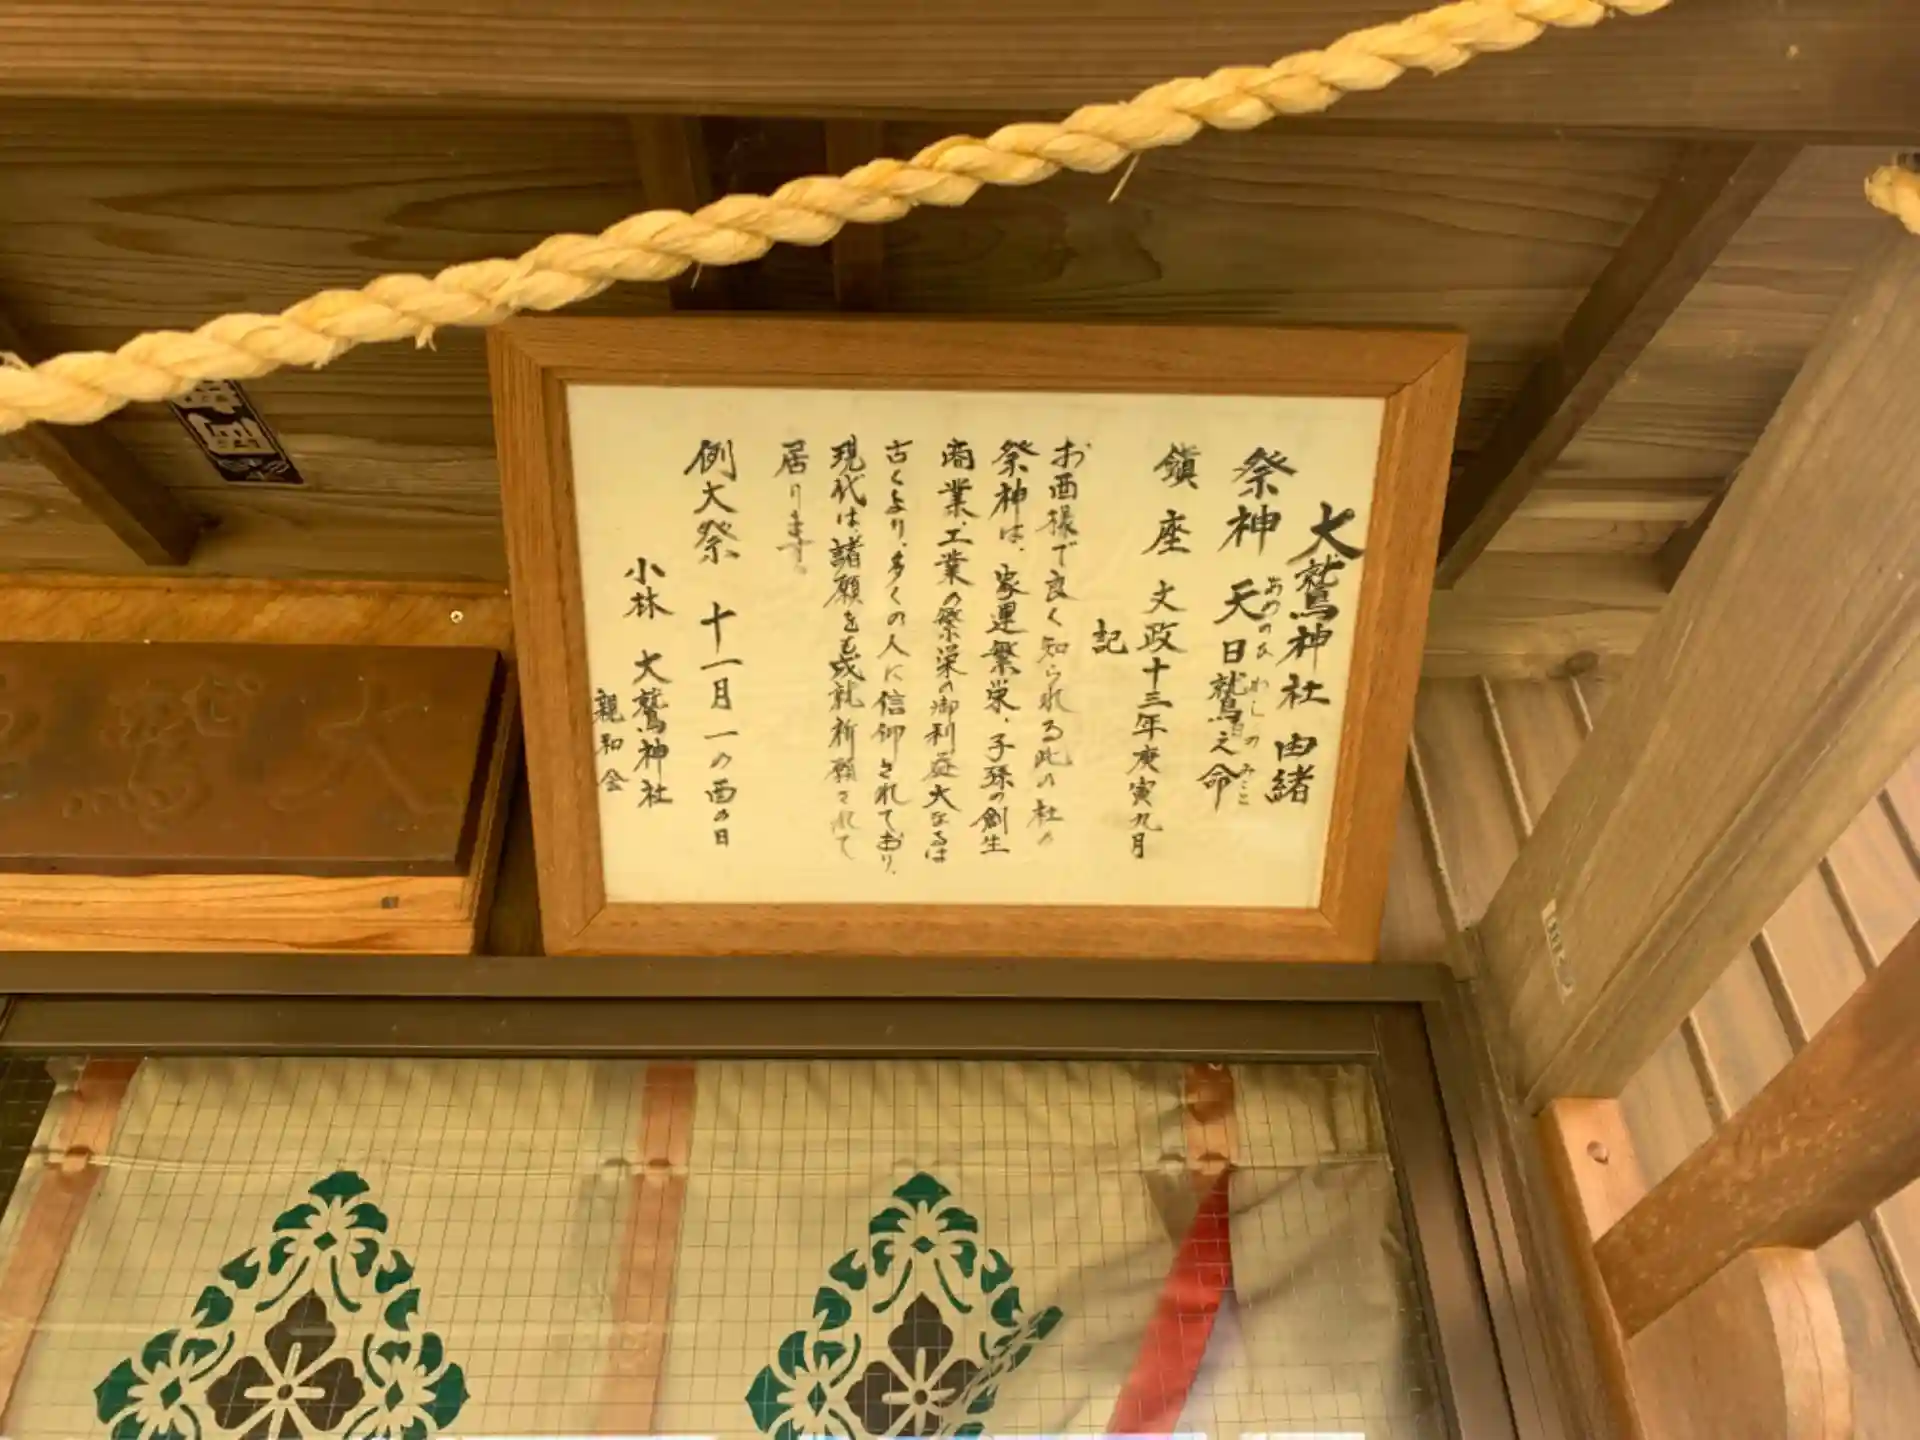 大鷲神社 由緒
祭神 天日鷲之命
あめのひ わしの みこと
鎮座 文政十三年庚寅九月
記
お酉様で良く知られる此の社の
祭神は、家運繁栄、子孫の創生
商業、工業の繁栄の御利益大なるは
古くより、多くの人に信仰されており、
現代は、諸願をも成就祈願されて
居ります。
例大祭 十一月一の酉の日
小林 大鷲神社
親和会